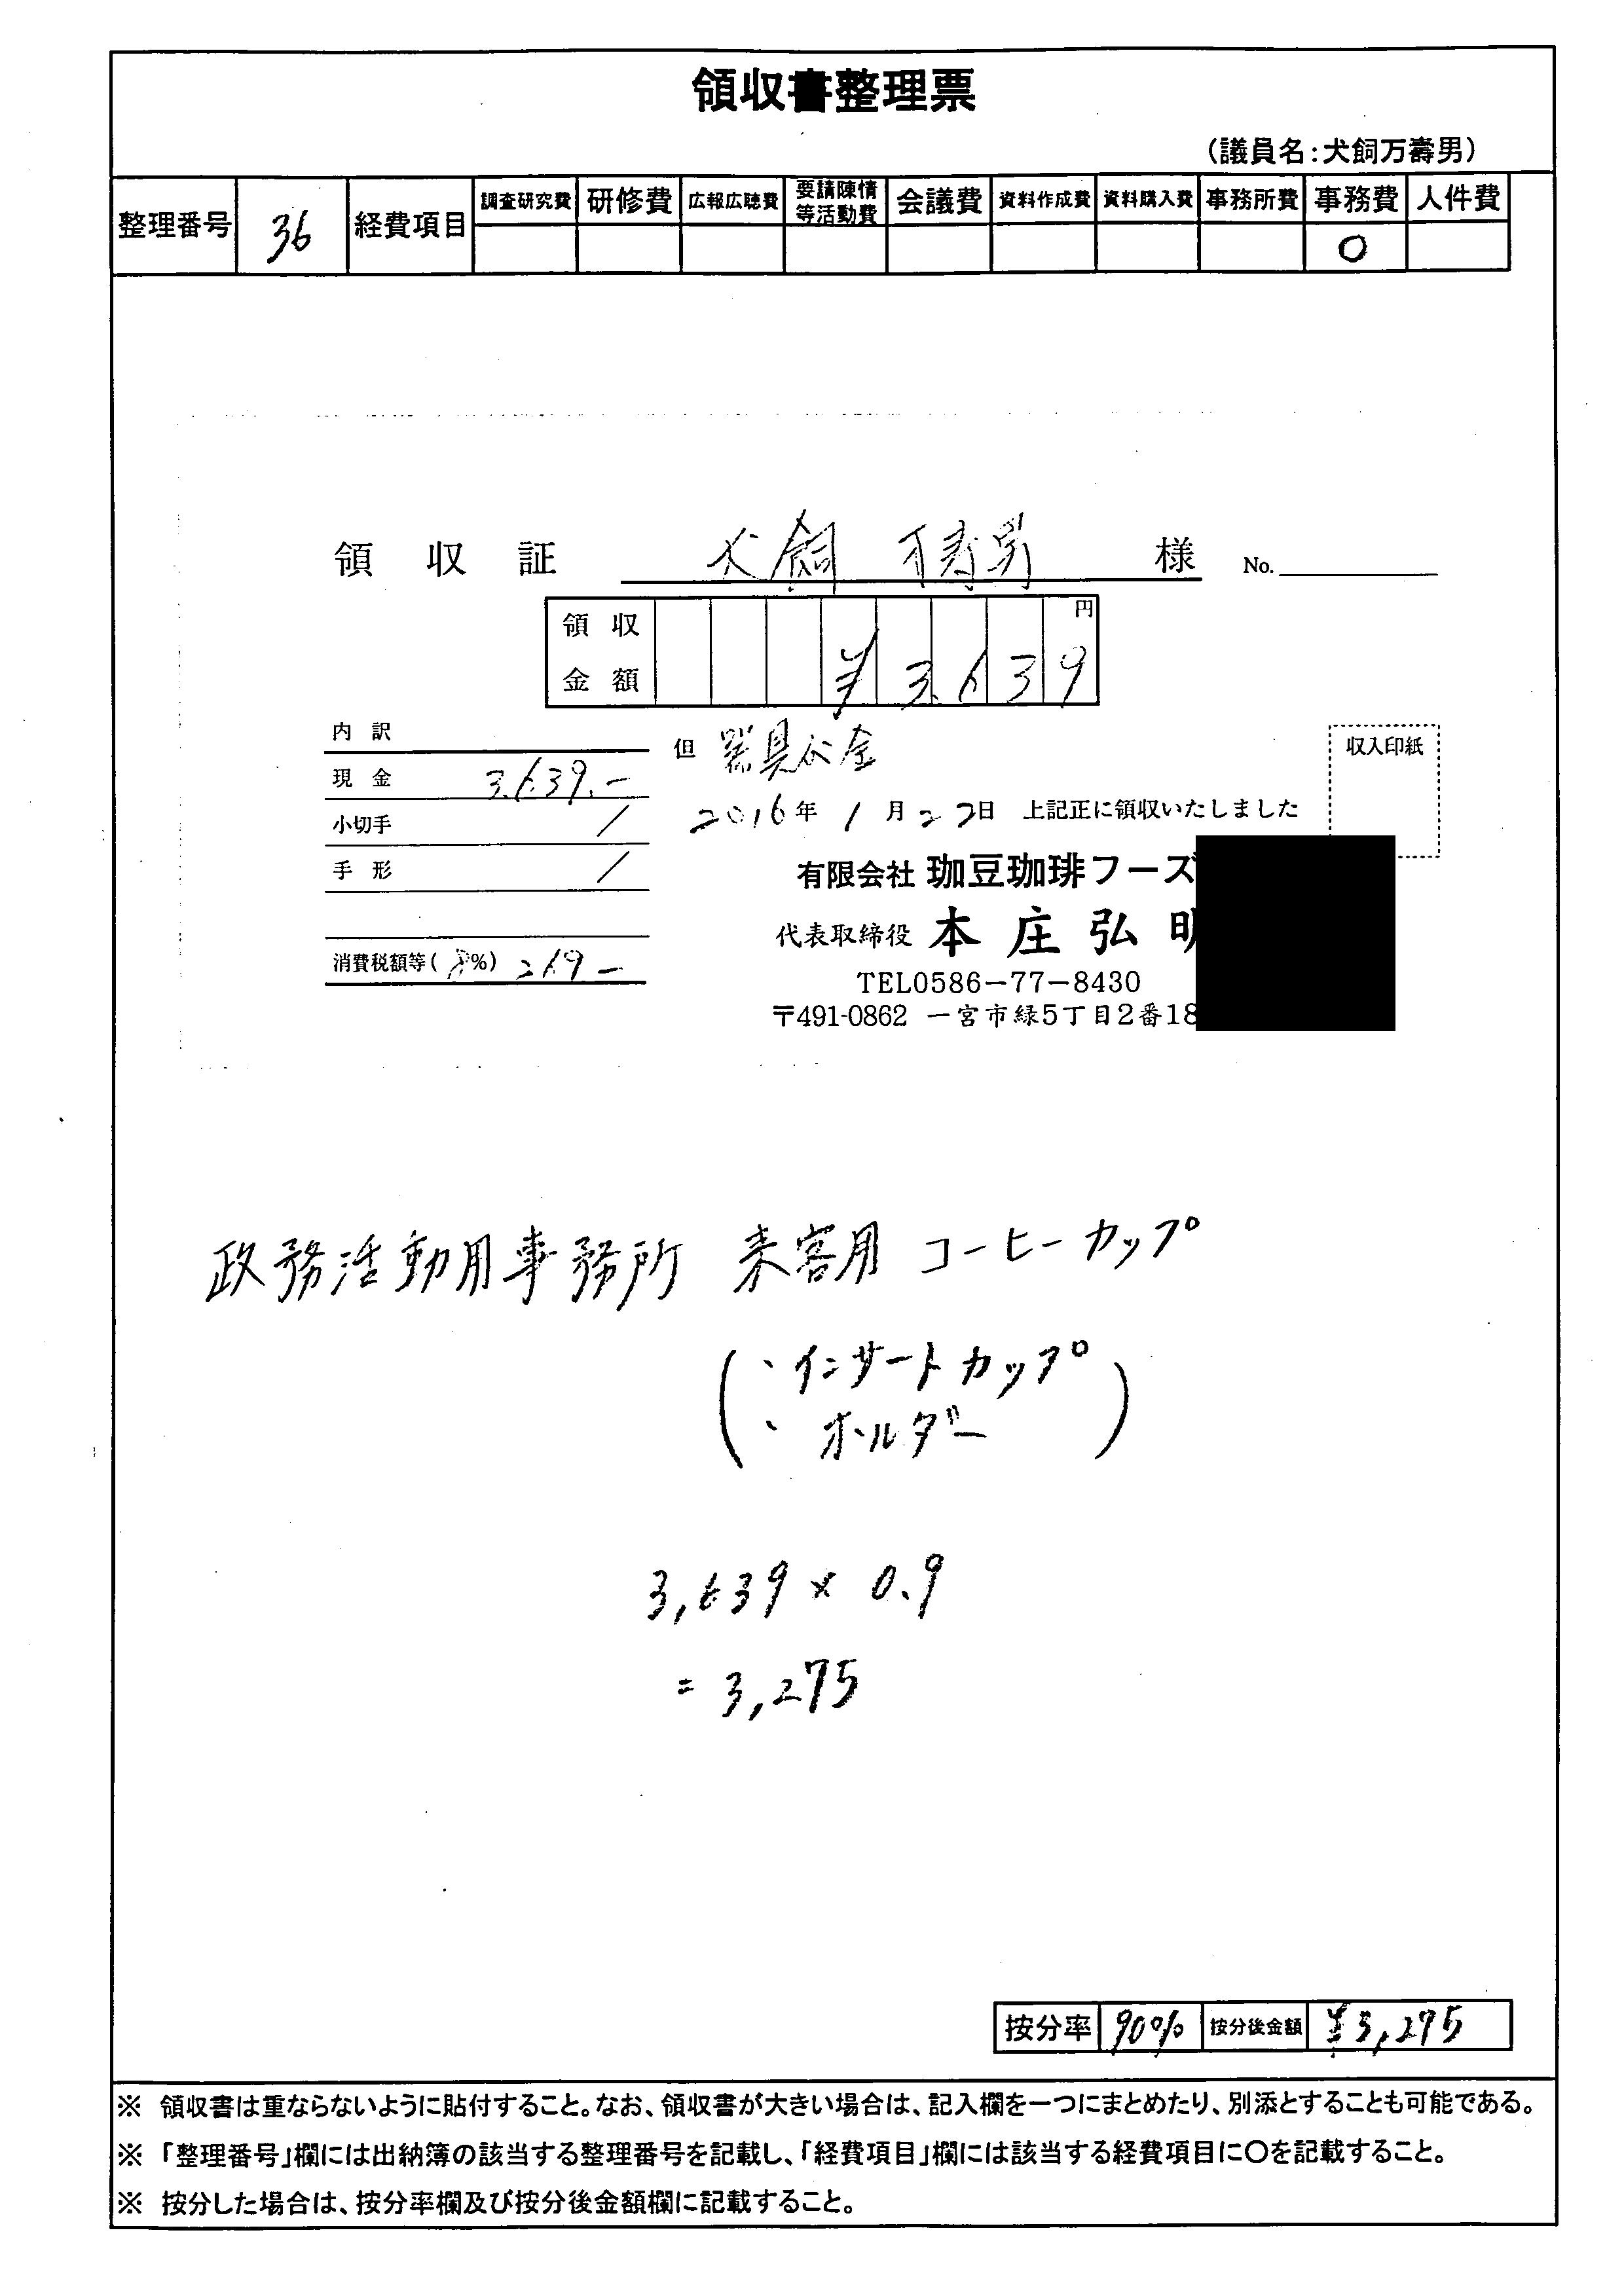 領収書整理票
(議員名:犬飼万壽男)
整理番号 36 経費項目 調査研究費 研修費 広報広聴費 要請陳情等活動費 会議費 資料作成費 資料購入費 事務所費 事務費 人件費
○
領収証 犬飼 万寿男 様 No.
領収金額 ¥3,639 円
内訳
但 器具代金
収入印紙
現金 3,639.-
2016年1月27日 上記正に領収いたしました
小切手 /
手形 /
有限会社 珈豆珈琲フーズ
代表取締役 本庄弘明
消費税額等(8%) 269-
TEL0586-77-8430
〒491-0862 一宮市緑5丁目2番18
政務活動用事務所 来客用 コーヒーカップ
(・インサートカップ
・ホルダー)
3,639 × 0.9
= 3,275
按分率 90% 按分後金額 ¥3,275
※ 領収書は重ならないように貼付すること。なお、領収書が大きい場合は、記入欄を一つにまとめたり、別添とすることも可能である。
※ 「整理番号」欄には出納簿の該当する整理番号を記載し、「経費項目」欄には該当する経費項目に〇を記載すること。
※ 按分した場合は、按分率欄及び按分後金額欄に記載すること。